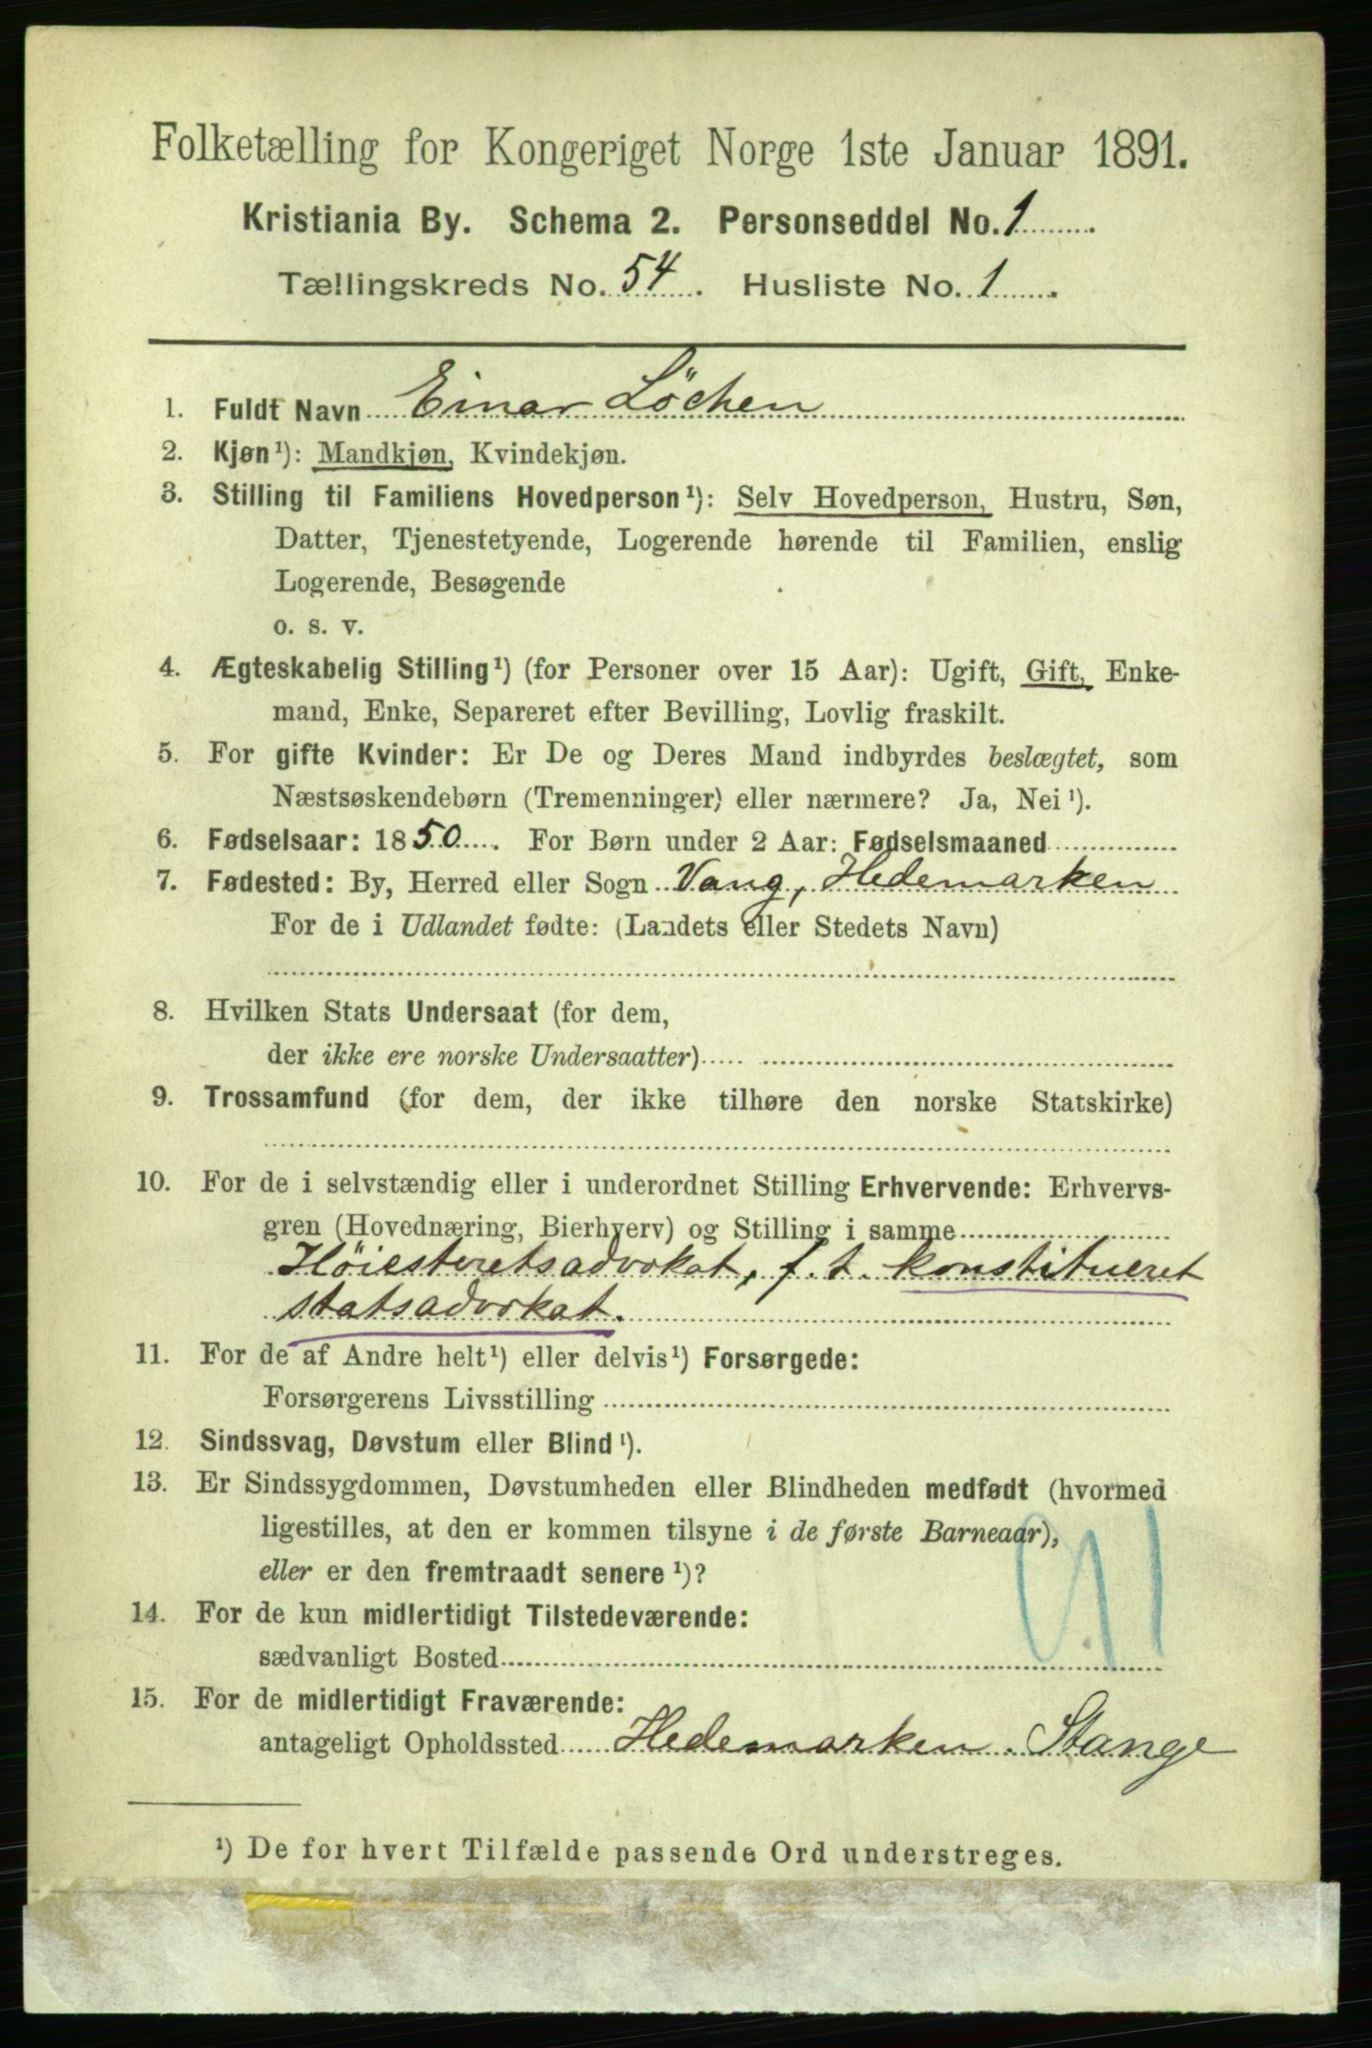 Folketælling for Kongeriget Norge 1ste Januar 1891.
Kristiania By. Schema 2. Personseddel No. 1
Tællingskreds No. 54. Husliste No. 1.
1. Fuldt Navn Einar Löchen
2. Kjøn¹): Mandkjøn, Kvindekjøn.
3. Stilling til Familiens Hovedperson¹): Selv Hovedperson, Hustru, Søn,
Datter, Tjenestetyende, Logerende hørende til Familien, enslig
Logerende, Besøgende
o. s. v.
4. Ægteskabelig Stilling¹) (for Personer over 15 Aar): Ugift, Gift, Enke-
mand, Enke, Separeret efter Bevilling, Lovlig fraskilt.
5. For gifte Kvinder: Er De og Deres Mand indbyrdes beslægtet, som
Næstsøskendebørn (Tremenninger) eller nærmere? Ja, Nei¹).
6. Fødselsaar: 1850. For Børn under 2 Aar: Fødselsmaaned
7. Fødested: By, Herred eller Sogn Vang, Hedemarken
For de i Udlandet fødte: (Landets eller Stedets Navn)
8. Hvilken Stats Undersaat (for dem,
der ikke ere norske Undersaatter)
9. Trossamfund (for dem, der ikke tilhøre den norske Statskirke)
10. For de i selvstændig eller i underordnet Stilling Erhvervende: Erhvervs-
gren (Hovednæring, Bierhverv) og Stilling i samme
Höiesteretsadvokat, f. t. konstitueret
statsadvokat.
11. For de af Andre helt¹) eller delvis¹) Forsørgede:
Forsørgerens Livsstilling
12. Sindssvag, Døvstum eller Blind¹).
13. Er Sindssygdommen, Døvstumheden eller Blindheden medfødt (hvormed
ligestilles, at den er kommen tilsyne i de første Barneaar),
eller er den fremtraadt senere¹)?
91
14. For de kun midlertidigt Tilstedeværende:
sædvanligt Bosted
15. For de midlertidigt Fraværende:
antageligt Opholdssted Hedemarken. Stange
¹) De for hvert Tilfælde passende Ord understreges.